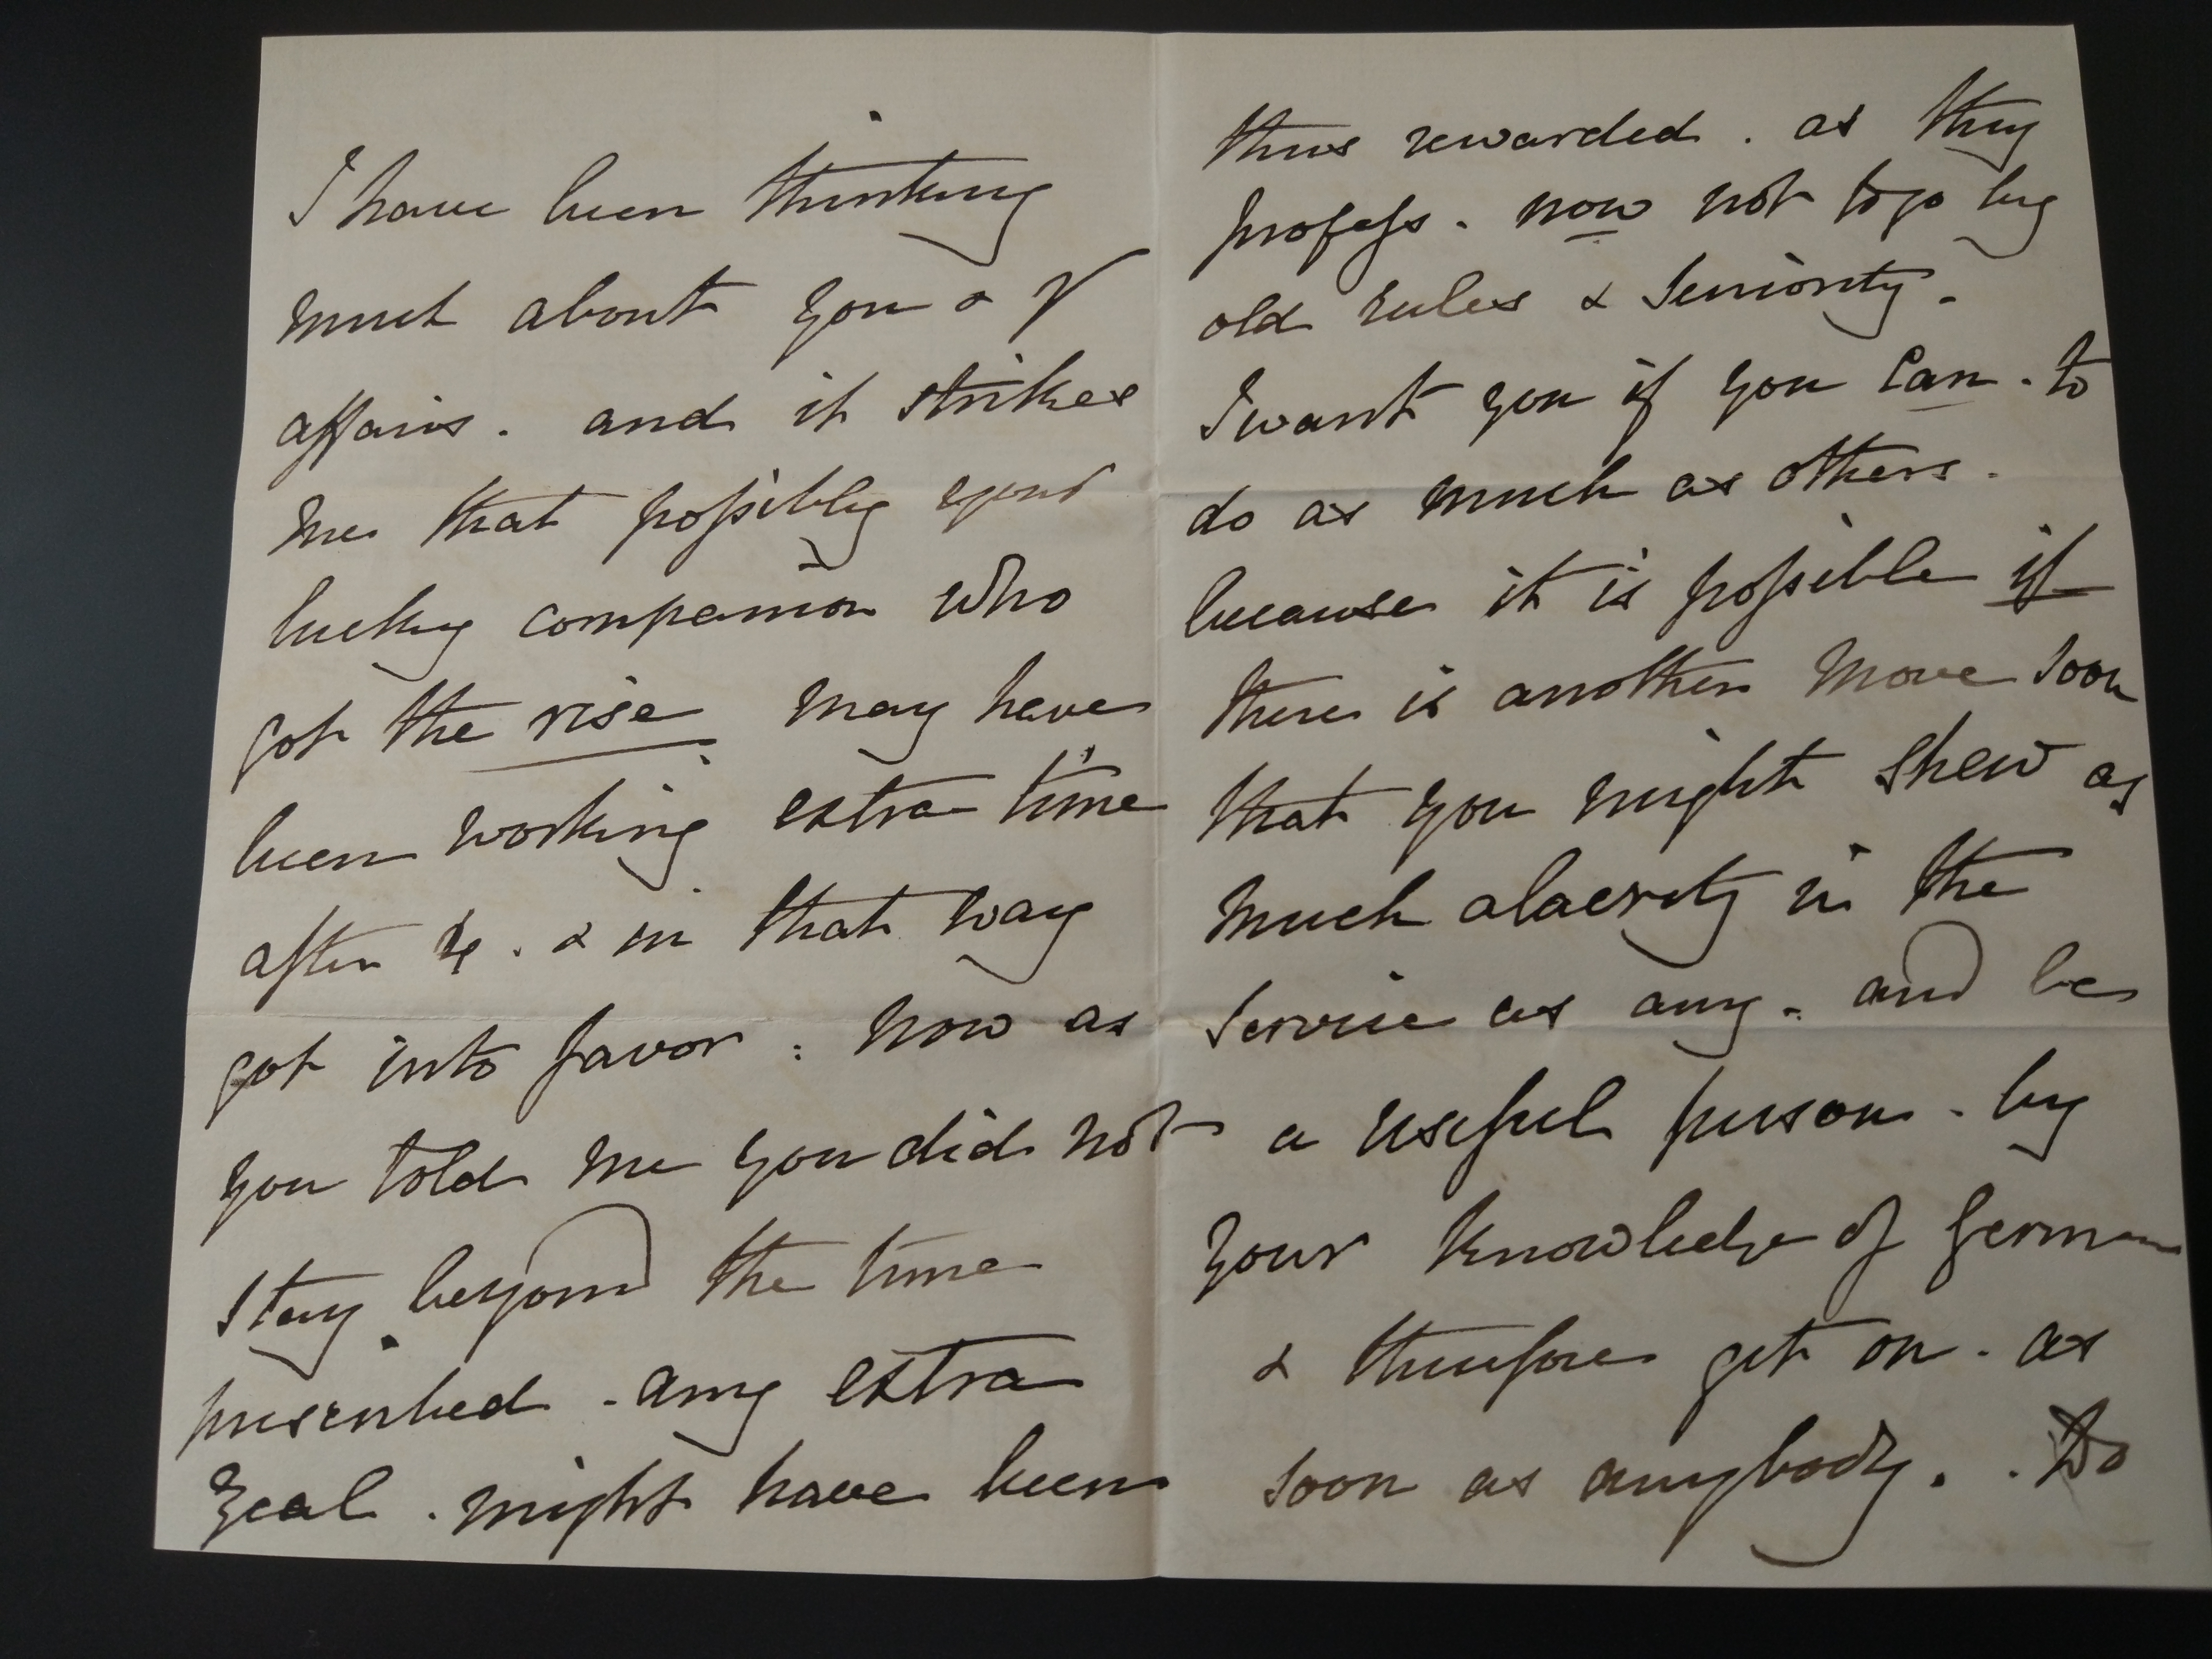 I have been thinking
much about you & yr
affairs . and it strikes
me that possibly your
lucky companion who
got the rise may have
been working extra time
after 4 . & in that way
got into favor : now as
you told me you did not
stay beyond the time
prescribed . any extra
zeal . might have been
thus rewarded . as they
profess . now not to go by
old rules & seniority .
I want you if you can . to
do as much as others .
because it is possible if
there is another move soon
that you might shew as
much alacrity in the
service as any . and be
a useful person . by
your knowledge of German
& therefore get on . as
soon as anybody . . Do